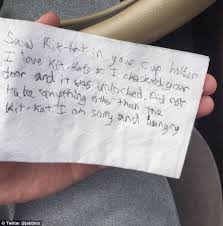 Saw Kit-Kat in your cup holder
I love Kit-Kats so I checked your
door and it was unlocked. Did not
take anything other than the
Kit-Kat I am sorry and hungry
© Twitter @jabbins